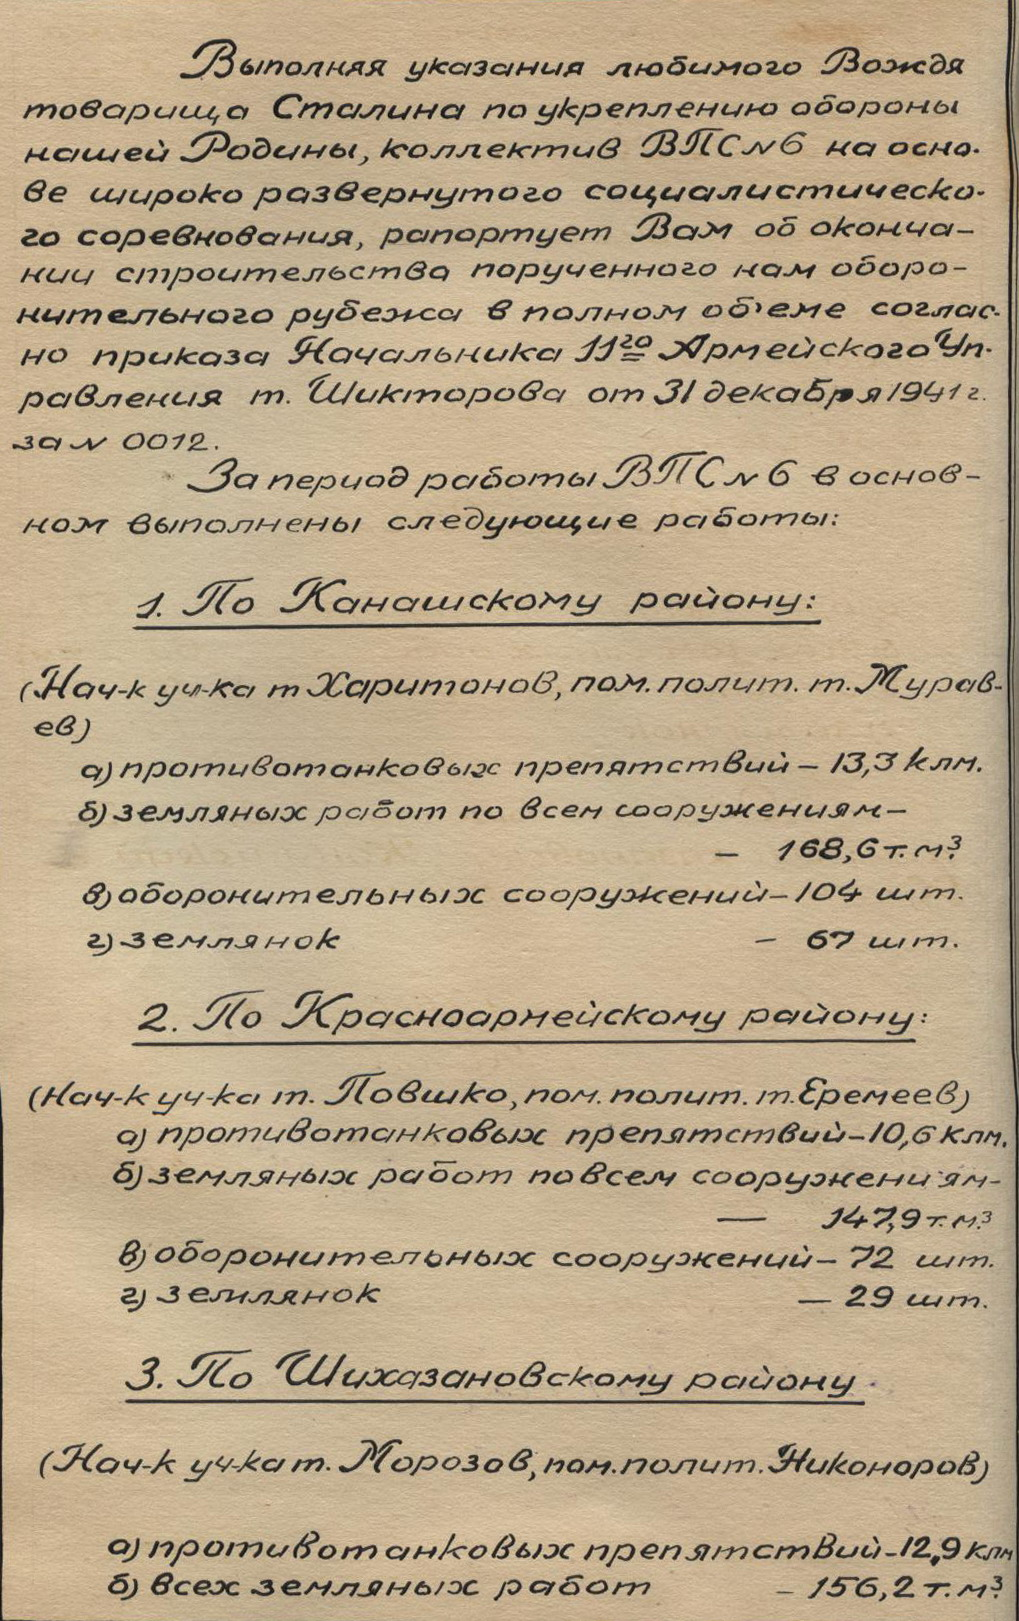 Выполняя указания любимого Вождя
товарища Сталина по укреплению обороны
нашей Родины, коллектив ВПС №6 на осно-
ве широко развернутого социалистическо-
го соревнования, рапортует Вам об оконча-
нии строительства порученного нам оборо-
нительного рубежа в полном об'еме соглас-
но приказа Начальника 11го Армейского Уп-
равления т. Шикторова от 31 декабря 1941 г.
за № 0012.
За период работы ВПС №6 в основ-
ном выполнены следующие работы:
1. По Канашскому району:
(Нач-к уч-ка т Харитонов, пом. полит. т. Мурав-
ев)
а) противотанковых препятствий – 13,3 клм.
б) земляных работ по всем сооружениям –
– 168,6 т. м³.
в) оборонительных сооружений – 104 шт.
г) землянок – 67 шт.
2. По Красноармейскому району:
(Нач-к уч-ка т. Повшко, пом. полит. т. Еремеев)
а) противотанковых препятствий – 10,6 клм.
б) земляных работ по всем сооружениям –
— 147,9 т. м.³
в) оборонительных сооружений – 72 шт.
г) землянок — 29 шт.
3. По Шихазановскому району.
(Нач-к уч-ка т. Морозов, пом. полит. Никоноров)
а) противотанковых препятствий – 12,9 клм
б) всех земляных работ – 156,2 т. м³.